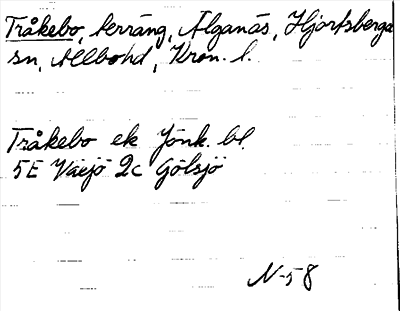 Tråkebo, terräng, Älganäs, Hjortsberga
sn, Allbohd, Kron. l.
Tråkebo ek Jönk. bl.
5E Växjö 2c Gölsjö
N-58